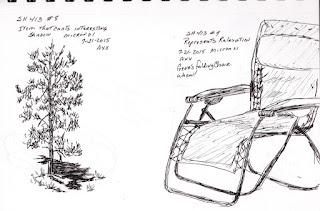 SH 4/13 #8
Item that casts interesting
Shadow micron 01
7-21-2015
Axx
SH 4/13 #9
Represents Relaxation
7-21-2015 Micron 01
Axx
Folding Chair